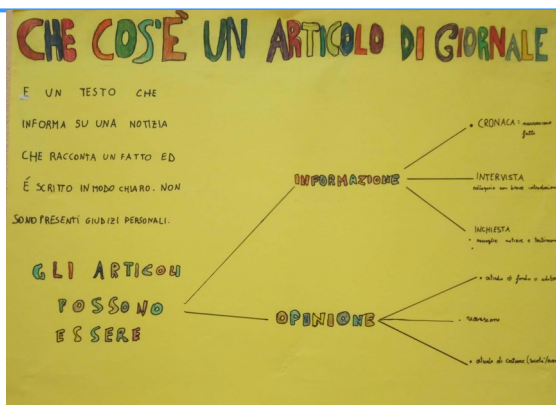 CHE COS'È UN ARTICOLO DI GIORNALE
E UN TESTO CHE
INFORMA SU UNA NOTIZIA
CHE RACCONTA UN FATTO ED
É SCRITTO IN MODO CHIARO. NON
SONO PRESENTI GIUDIZI PERSONALI.
GLI ARTICOLI
POSSONO
ESSERE
INFORMAZIONE
• CRONACA:
fatto
INTERVISTA
colloquio con breve
INCHIESTA
• raccoglie notizie e
OPINIONE
• articolo di fondo o
• articolo di costume